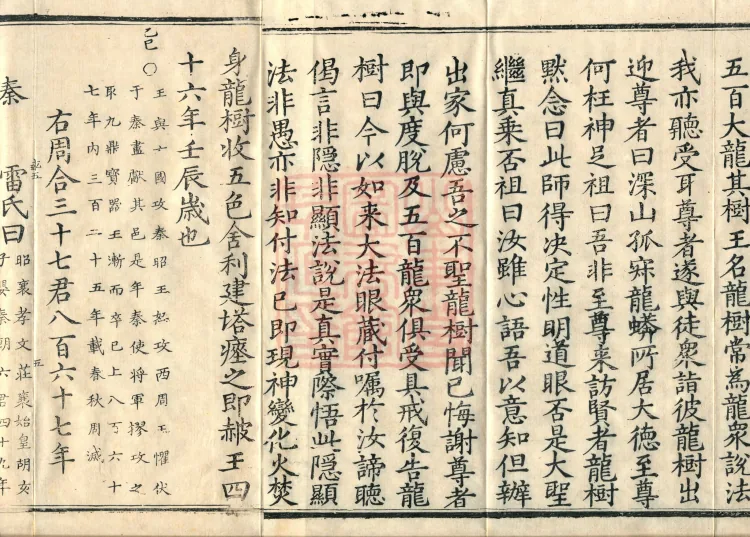 五百大龍其樹王名龍樹常為龍衆說法
我亦聽受耳尊者遂與徒衆詣彼龍樹出
迎尊者曰深山孤寂龍蟒所居大德至尊
何枉神足祖曰吾非至尊来訪賢者龍樹
黙念曰此師得决定性明道眼否是大聖
繼真乘否祖曰汝雖心語吾以意知但辦
出家何慮吾之不聖龍樹聞已悔謝尊者
即與度脫及五百龍衆俱受具戒復告龍
樹曰今以如来大法眼蔵付囑於汝諦聽
偈言非隠非顯法說是真實際悟此隠顯
法非愚亦非知付法已即現神變化火焚
身龍樹收五色舍利建塔瘞之即赧王四
十六年壬辰歳也
乙巳〇王與六國攻秦昭王怒攻西周王懼伏
于秦盡献其邑是年秦使將軍摎攻之
取九鼎寳器王漸而卒已上八丁六十
七年内三百二十五年載春秋周滅
右周合三十七君八百六十七年
秦 雷氏曰昭襄孝文莊襄始皇胡亥
子嬰秦朝六君四十九年